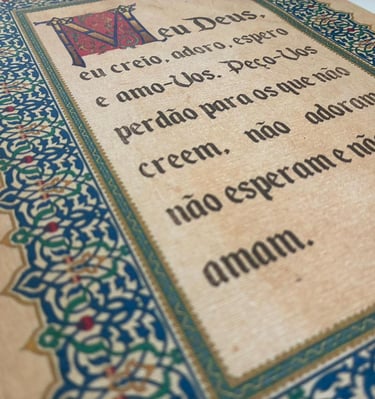 Meu Deus,
eu creio, adoro, espero
e amo-Vos. Peço-Vos
perdão para os que não
creem, não adoram
não esperam e não
amam.